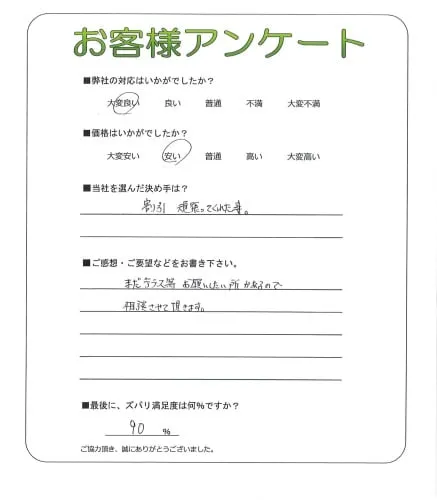 お客様アンケート
■弊社の対応はいかがでしたか？
大変良い 良い 普通 不満 大変不満
■価格はいかがでしたか？
大変安い 安い 普通 高い 大変高い
■当社を選んだ決め手は？
割引 頑張ってくれた事。
■ご感想・ご要望などをお書き下さい。
まだテラス等 お願いしたい所があるので
相談させて頂きます。
■最後に、ズバリ満足度は何％ですか？
90 ％
ご協力頂き、誠にありがとうございました。